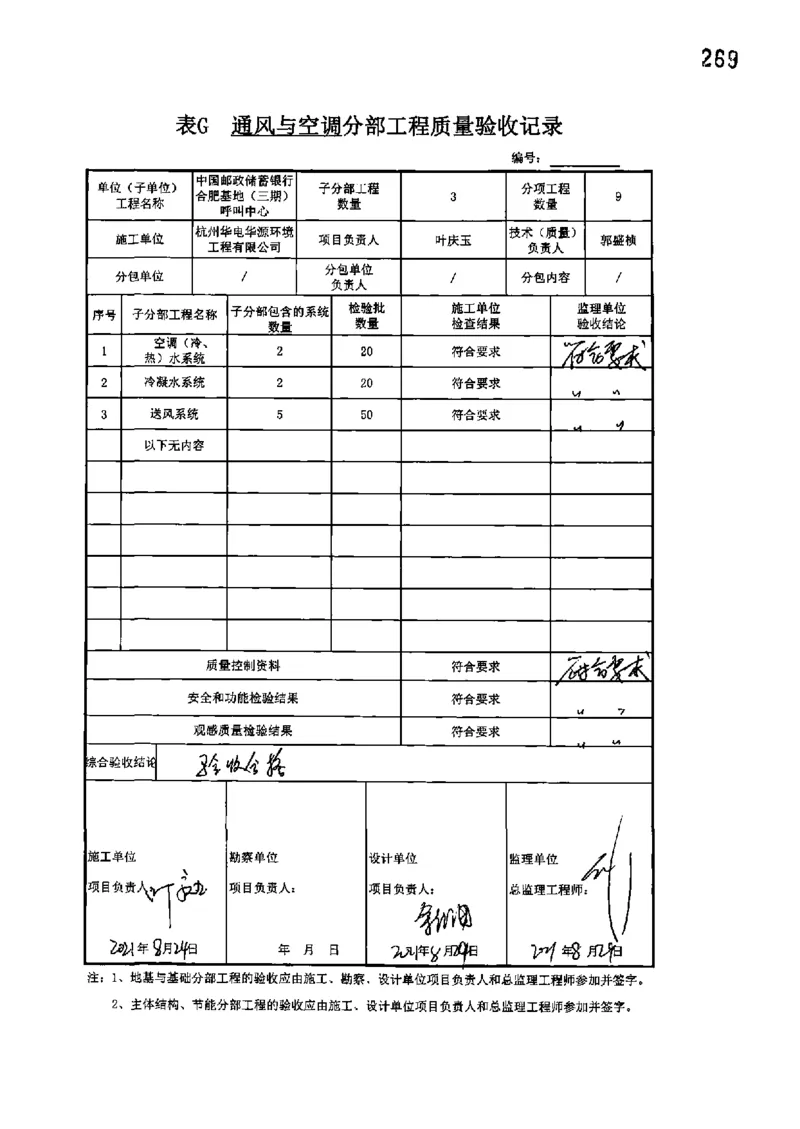 269
表G 通风与空调分部工程质量验收记录
编号：
单位（子单位）工程名称 中国邮政储蓄银行合肥基地（三期）呼叫中心 子分部工程数量 3 分项工程数量 9
施工单位 杭州华电华源环境工程有限公司 项目负责人 叶庆玉 技术（质量）负责人 郭盛桢
分包单位 / 分包单位负责人 / 分包内容 /
序号 子分部工程名称 子分部包含的系统数量 检验批数量 施工单位检查结果 监理单位验收结论
1 空调（冷、热）水系统 2 20 符合要求 符合要求
2 冷凝水系统 2 20 符合要求 〃 〃
3 送风系统 5 50 符合要求 〃 〃
以下无内容
质量控制资料 符合要求 符合要求
安全和功能检验结果 符合要求 〃 〃
观感质量检验结果 符合要求 〃 〃
综合验收结论 验收合格
施工单位 勘察单位 设计单位 监理单位
项目负责人： 项目负责人： 项目负责人： 总监理工程师：
2021年8月24日 年 月 日 2021年8月24日 2021年8月24日
注：1、地基与基础分部工程的验收应由施工、勘察、设计单位项目负责人和总监理工程师参加并签字。
2、主体结构、节能分部工程的验收应由施工、设计单位项目负责人和总监理工程师参加并签字。